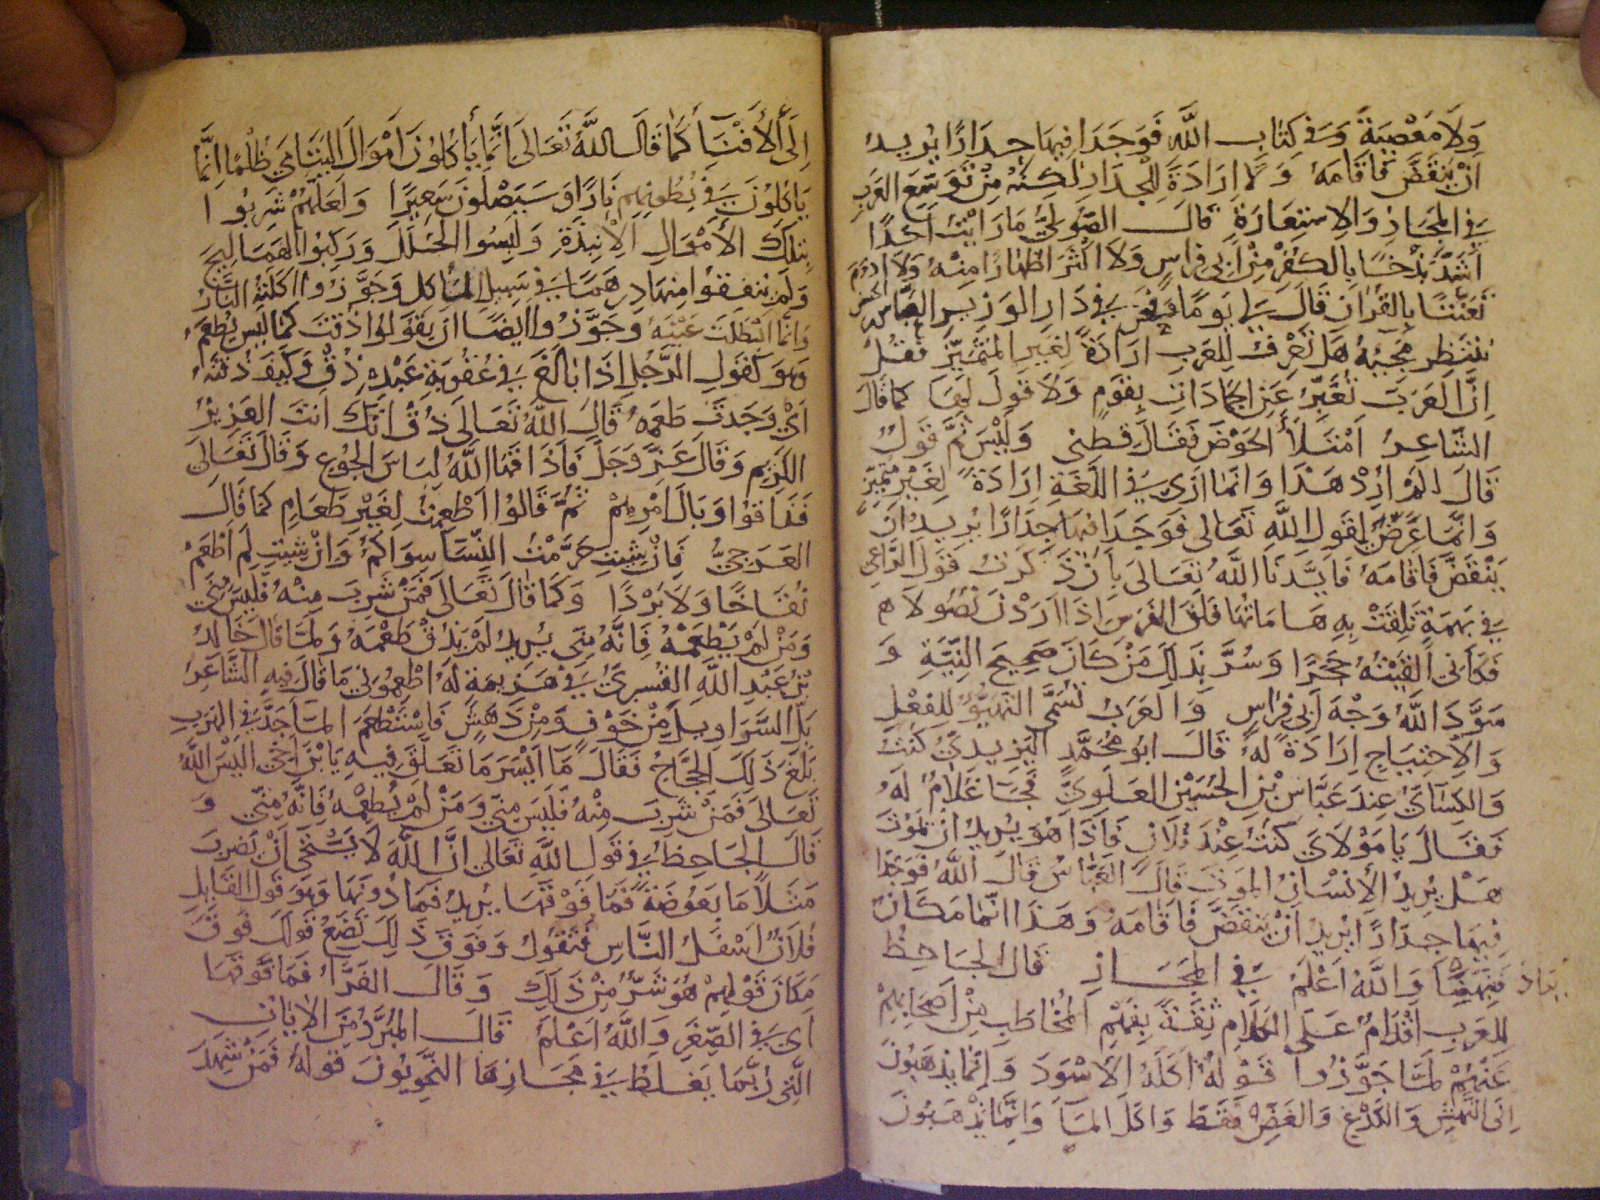 وَلَا مَعْصِيَةَ وَفِي كِتَابِ اللَّهِ فَوَجَدَا فِيهَا جِدَارًا يُرِيدُ
أَنْ يَنْقَضَّ فَأَقَامَهُ وَلَا إِرَادَةَ لِلْجِدَارِ لَكِنَّهُ مِنْ تَوَسُّعِ الْعَرَبِ
فِي الْمَجَازِ وَالِاسْتِعَارَةِ قَالَ الصُّولِيُّ مَا رَأَيْتُ أَحَدًا
أَشَدَّ بَذْخًا بِالْكُفْرِ مِنْ أَبِي فِرَاسٍ وَلَا أَكْثَرَ إِظْهَارًا مِنْهُ وَلَا أَدْوَمَ
تَعَنُّتًا بِالْقُرْآنِ قَالَ لِي يَوْمًا وَنَحْنُ فِي دَارِ الْوَزِيرِ الْعَبَّاسِ بْنِ الْحَسَنِ
نَنْتَظِرُ مَجِيئَهُ هَلْ تَعْرِفُ لِلْعَرَبِ إِرَادَةً لِغَيْرِ الْمُتَمَيِّزِ فَقُلْتُ
إِنَّ الْعَرَبَ تُعَبِّرُ عَنِ الْجَمَادَاتِ بِقَوْلٍ وَلَا قَوْلَ لَهَا كَمَا قَالَ
الشَّاعِرُ امْتَلَأَ الْحَوْضُ فَقَالَ قَطْنِي وَلَيْسَ ثَمَّ قَوْلٌ
قَالَ لَمْ أُرِدْ هَذَا وَإِنَّمَا أَرَى فِي اللُّغَةِ إِرَادَةً لِغَيْرِ مُمَيِّزٍ
وَإِنَّمَا عَرَّضَ لِقَوْلِ اللَّهِ تَعَالَى فَوَجَدَا فِيهَا جِدَارًا يُرِيدُ أَنْ
يَنْقَضَّ فَأَقَامَهُ فَأَيَّدَنَا اللَّهُ تَعَالَى بِأَنْ ذَكَرْتُ قَوْلَ الرَّاعِي
فِي مَهْمَهٍ قَلِقَتْ بِهِ هَامَاتُهَا قَلَقَ الْفُؤُوسِ إِذَا أَرَدْنَ نُصُولًا
فَكَأَنِّي أَلْقَمْتُهُ حَجَرًا وَسُرَّ بِذَلِكَ مَنْ كَانَ صَحِيحَ النِّيَّةِ وَ
سَوَّدَ اللَّهُ وَجْهَ أَبِي فِرَاسٍ وَالْعَرَبُ تُسَمِّي التَّهَيُّؤَ لِلْفِعْلِ
وَالِاحْتِيَاجِ إِرَادَةً لَهُ قَالَ أَبُو مُحَمَّدٍ الْيَزِيدِيُّ كُنْتُ
وَالْكِسَائِيَّ عِنْدَ عَبَّاسِ بْنِ الْحُسَيْنِ الْعَلَوِيِّ فَجَاءَ غُلَامٌ لَهُ
فَقَالَ يَا مَوْلَايَ كُنْتُ عِنْدَ فُلَانٍ فَإِذَا هُوَ يُرِيدُ أَنْ يَمُوتَ
هَلْ يُرِيدُ الْإِنْسَانُ الْمَوْتَ قَالَ الْعَبَّاسُ قَالَ اللَّهُ فَوَجَدَا
فِيهَا جِدَارًا يُرِيدُ أَنْ يَنْقَضَّ فَأَقَامَهُ وَهَذَا إِنَّمَا مَكَانٌ
فَتَنَبَّهْنَا وَاللَّهُ أَعْلَمُ فِي الْمَجَازِ قَالَ الْجَاحِظُ
لِلْعَرَبِ إِقْدَامٌ عَلَى الْكَلَامِ ثِقَةً بِفَهْمِ الْمُخَاطَبِ مِنْ أَصْحَابِهِمْ
عَنْهُمْ لَمَّا جَوَّزُوا قَوْلَهُ أَكَلَهُ الْأَسْوَدُ وَإِنَّمَا يَذْهَبُونَ
إِلَى النَّهْشِ وَاللَّدْغِ وَالْعَضِّ فَقَطْ وَأَكَلَ الْمَاءَ وَإِنَّمَا يَذْهَبُونَ
إِلَى الْأَفْنَاءِ كَمَا قَالَ اللَّهُ تَعَالَى إِنَّمَا يَأْكُلُونَ أَمْوَالَ الْيَتَامَى ظُلْمًا إِنَّمَا
يَأْكُلُونَ فِي بُطُونِهِمْ نَارًا وَسَيَصْلَوْنَ سَعِيرًا وَلَعَلَّهُمْ شَرِبُوا
بِتِلْكَ الْأَمْوَالِ الْأَنْبِذَةَ وَلَبِسُوا الْحُلَلَ وَرَكِبُوا الْهَمَالِيجَ
وَلَمْ يُنْفِقُوا مِنْهَا دِرْهَمًا فِي سَبِيلِ الْمَأْكَلِ وَجَوَّزُوا أَكَلَتْهُ النَّارُ
وَإِنَّمَا أَبْطَلَتْ عَيْنَهُ وَجَوَّزُوا أَيْضًا أَنْ يَقُولُوا ذُقْتَ لِمَا لَيْسَ يُطْعَمُ
وَهُوَ كَقَوْلِ الرَّجُلِ إِذَا بَالَغَ فِي عُقُوبَةِ عَبْدِهِ ذُقْ وَكَيْفَ ذُقْتَهُ
أَيْ وَجَدْتَ طَعْمَهُ قَالَ اللَّهُ تَعَالَى ذُقْ إِنَّكَ أَنْتَ الْعَزِيزُ
الْكَرِيمُ وَقَالَ عَزَّ وَجَلَّ فَأَذَاقَهَا اللَّهُ لِبَاسَ الْجُوعِ وَقَالَ تَعَالَى
فَذَاقُوا وَبَالَ أَمْرِهِمْ ثُمَّ قَالُوا أُطْعِمْتُ لِغَيْرِ طَعَامٍ كَمَا قَالَ
الْعَرْجِيُّ فَإِنْ شِئْتِ حَرَّمْتُ النِّسَاءَ سِوَاكُمُ وَإِنْ شِئْتِ لَمْ أَطْعَمْ
نُقَاخًا وَلَا بَرْدًا وَكَمَا قَالَ تَعَالَى فَمَنْ شَرِبَ مِنْهُ فَلَيْسَ مِنِّي
وَمَنْ لَمْ يَطْعَمْهُ فَإِنَّهُ مِنِّي يُرِيدُ لَمْ يَذُقْ طَعْمَهُ وَلَمَّا قَالَ خَالِدُ
بْنُ عَبْدِ اللَّهِ الْقَسْرِيُّ فِي هَزِيمَةٍ لَهُ أَطْعِمُونِي مَا قَالَ فِيهِ الشَّاعِرُ
بَلَّ السَّرَاوِيلَ مِنْ خَوْفٍ وَمِنْ دَهَشٍ فَاسْتَطْعَمَ الْمَاءَ جَدَّ فِي الْهَرَبِ
بَلَغَ ذَلِكَ الْحَجَّاجَ فَقَالَ مَا أَيْسَرَ مَا تَعَلَّقَ فِيهِ يَا بْنَ أَخِي أَلَيْسَ اللَّهُ
تَعَالَى فَمَنْ شَرِبَ مِنْهُ فَلَيْسَ مِنِّي وَمَنْ لَمْ يَطْعَمْهُ فَإِنَّهُ مِنِّي وَ
قَالَ الْجَاحِظُ فِي قَوْلِ اللَّهِ تَعَالَى إِنَّ اللَّهَ لَا يَسْتَحْيِي أَنْ يَضْرِبَ
مَثَلًا مَا بَعُوضَةً فَمَا فَوْقَهَا يُرِيدُ فَمَا دُونَهَا وَهُوَ قَوْلُ الْقَائِلِ
فُلَانٌ أَسْفَلُ النَّاسِ فَتَقُولُ وَفَوْقَ ذَلِكَ تَضَعُ قَوْلَكَ فَوْقَ
مَكَانَ قَوْلِهِمْ هُوَ شَرٌّ مِنْ ذَلِكَ وَقَالَ الْفَرَّاءُ فَمَا فَوْقَهَا
أَيْ فِي الصِّغَرِ وَاللَّهُ أَعْلَمُ قَالَ الْمُبَرَّدُ مِنَ الْآيَاتِ
الَّتِي رُبَّمَا يَغْلَطُ فِي مَجَازِهَا النَّحْوِيُّونَ قَوْلُهُ فَمَنْ شَهِدَ